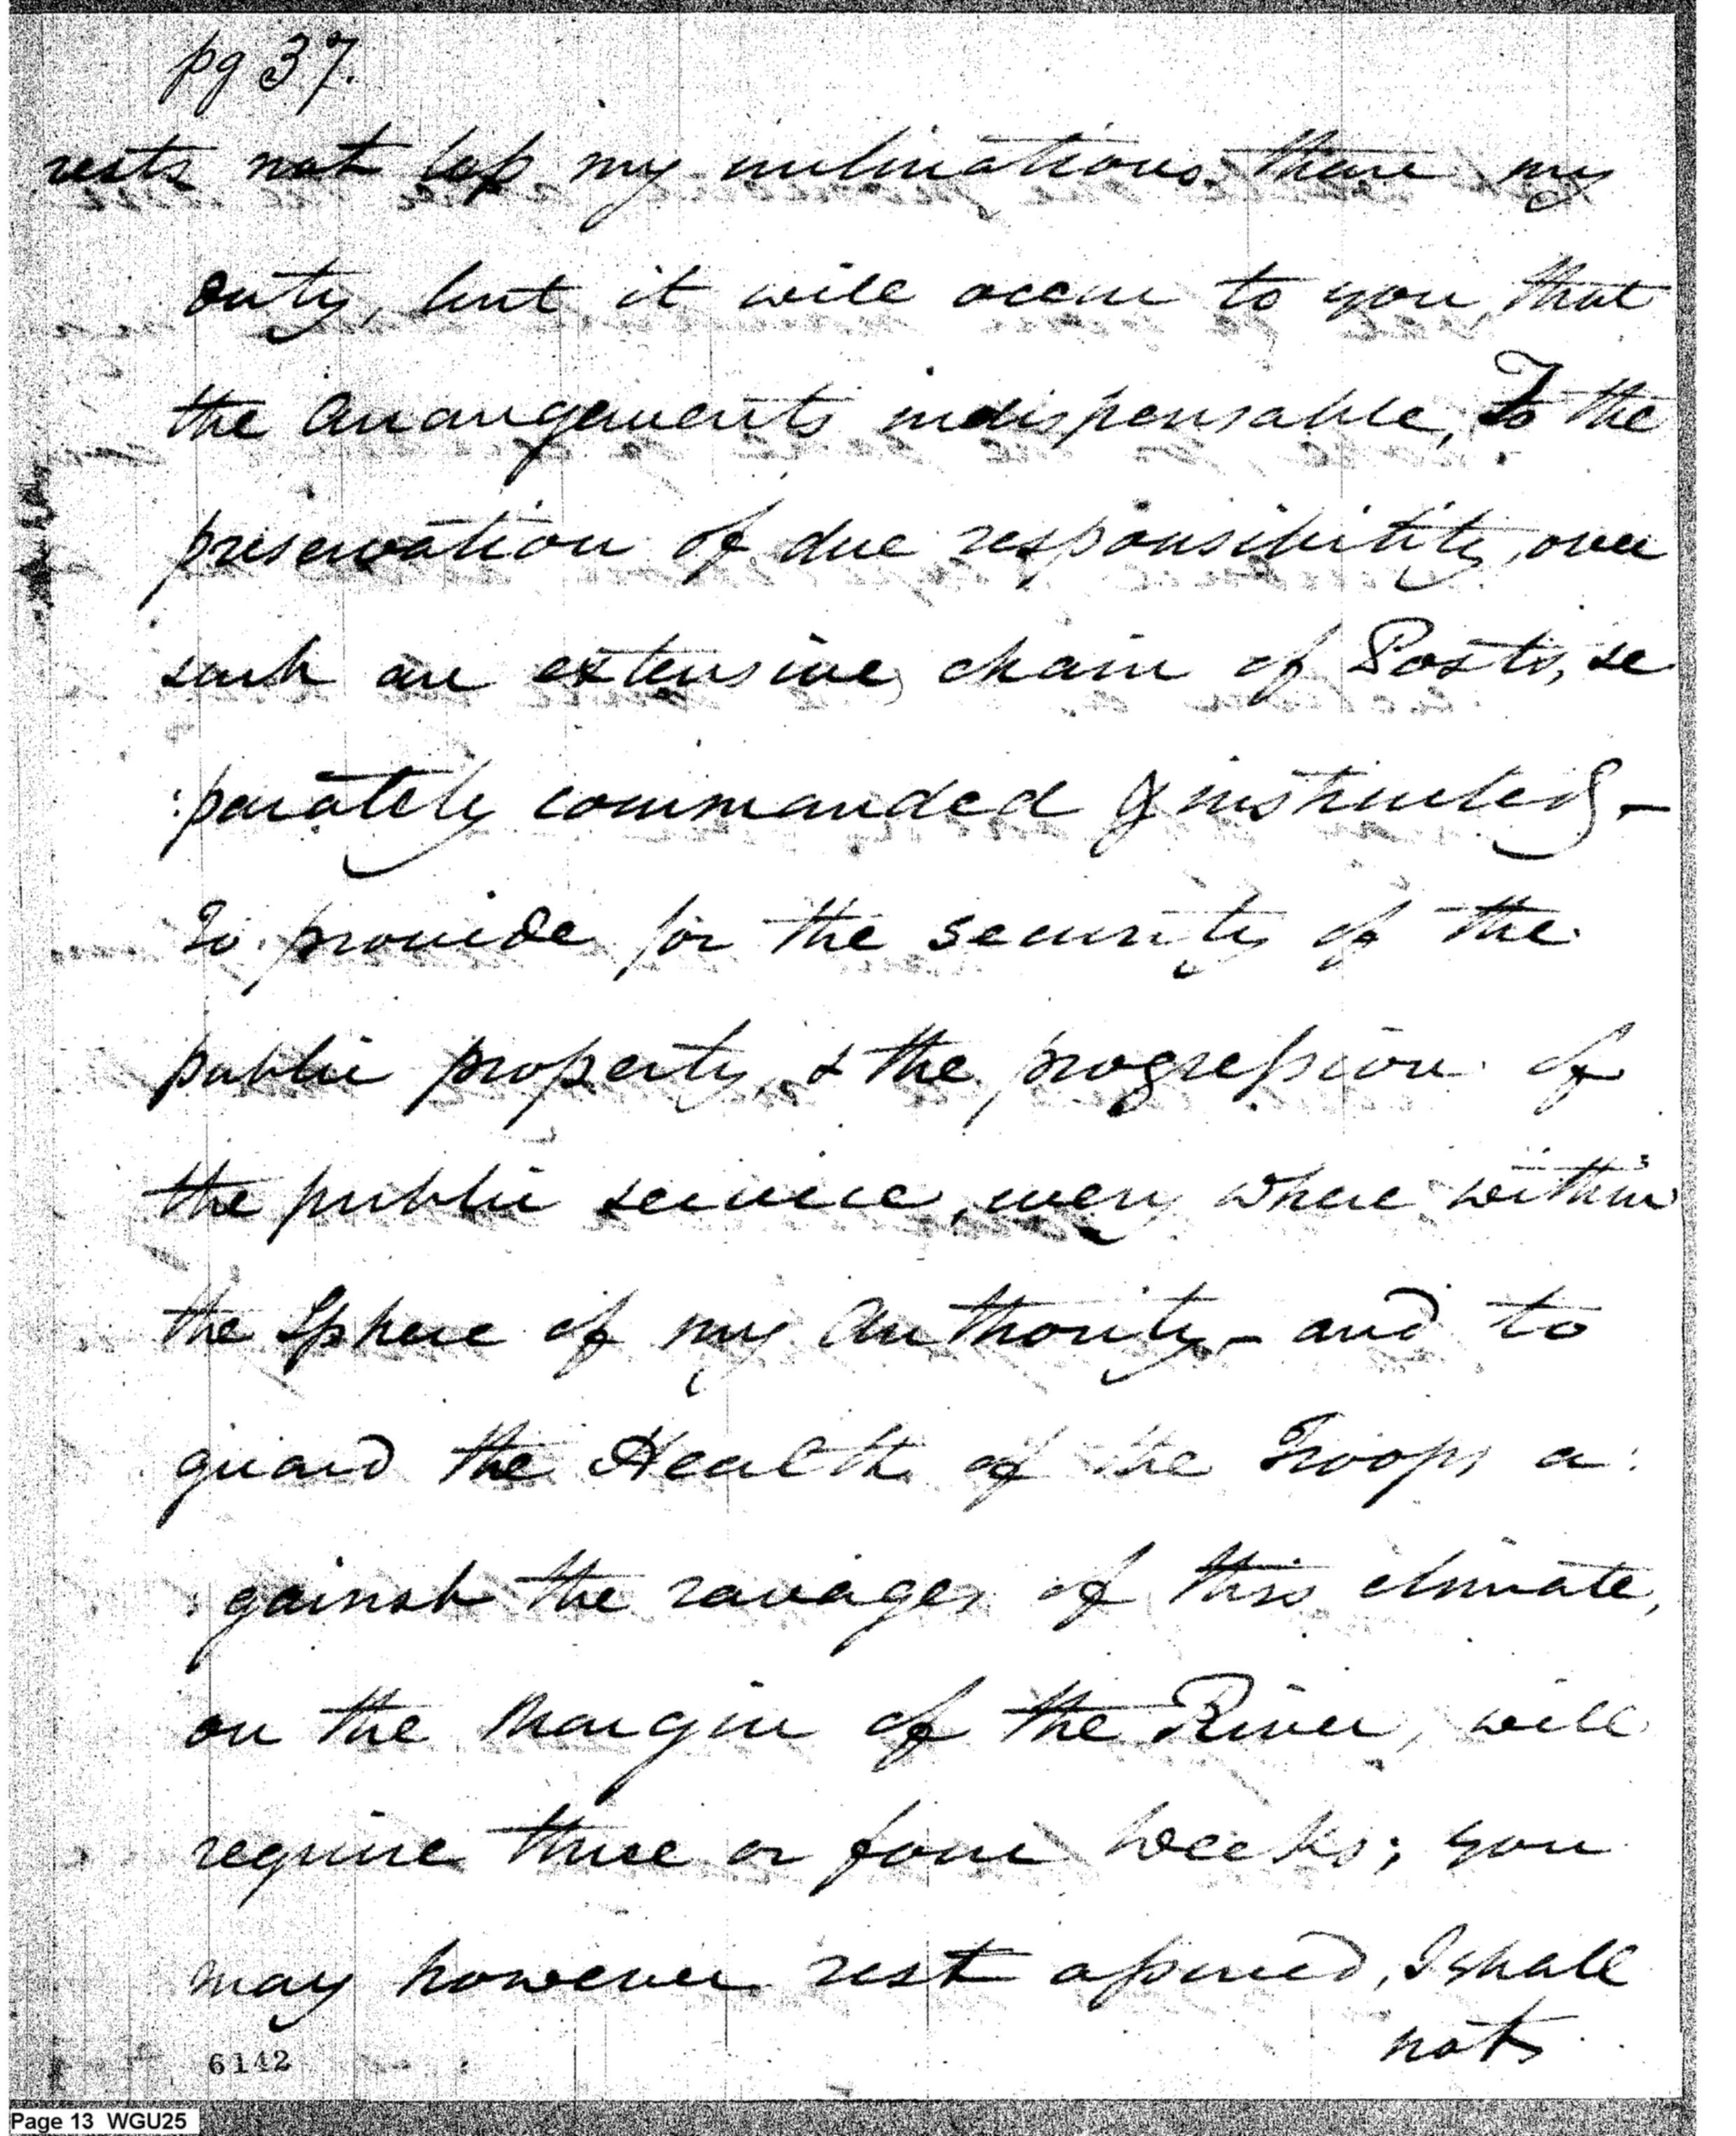 pg 37.
rests not less my inclinations than my
duty, but it will occur to you, that
the arrangements indispensable, To the
preservation of due responsibility, over
such an extensive, chain of Posts, se
:parately commanded & instructed, -
To provide for the security of the
public property, & the progression of
the public service, every where within
the Sphere of my Authority - and to
guard the Health of the Troops a:
:gainst the ravages of this climate,
on the Margin of the River, will
require three or four weeks; you
may however rest assured, I shall
not
6142
Page 13 WGU25